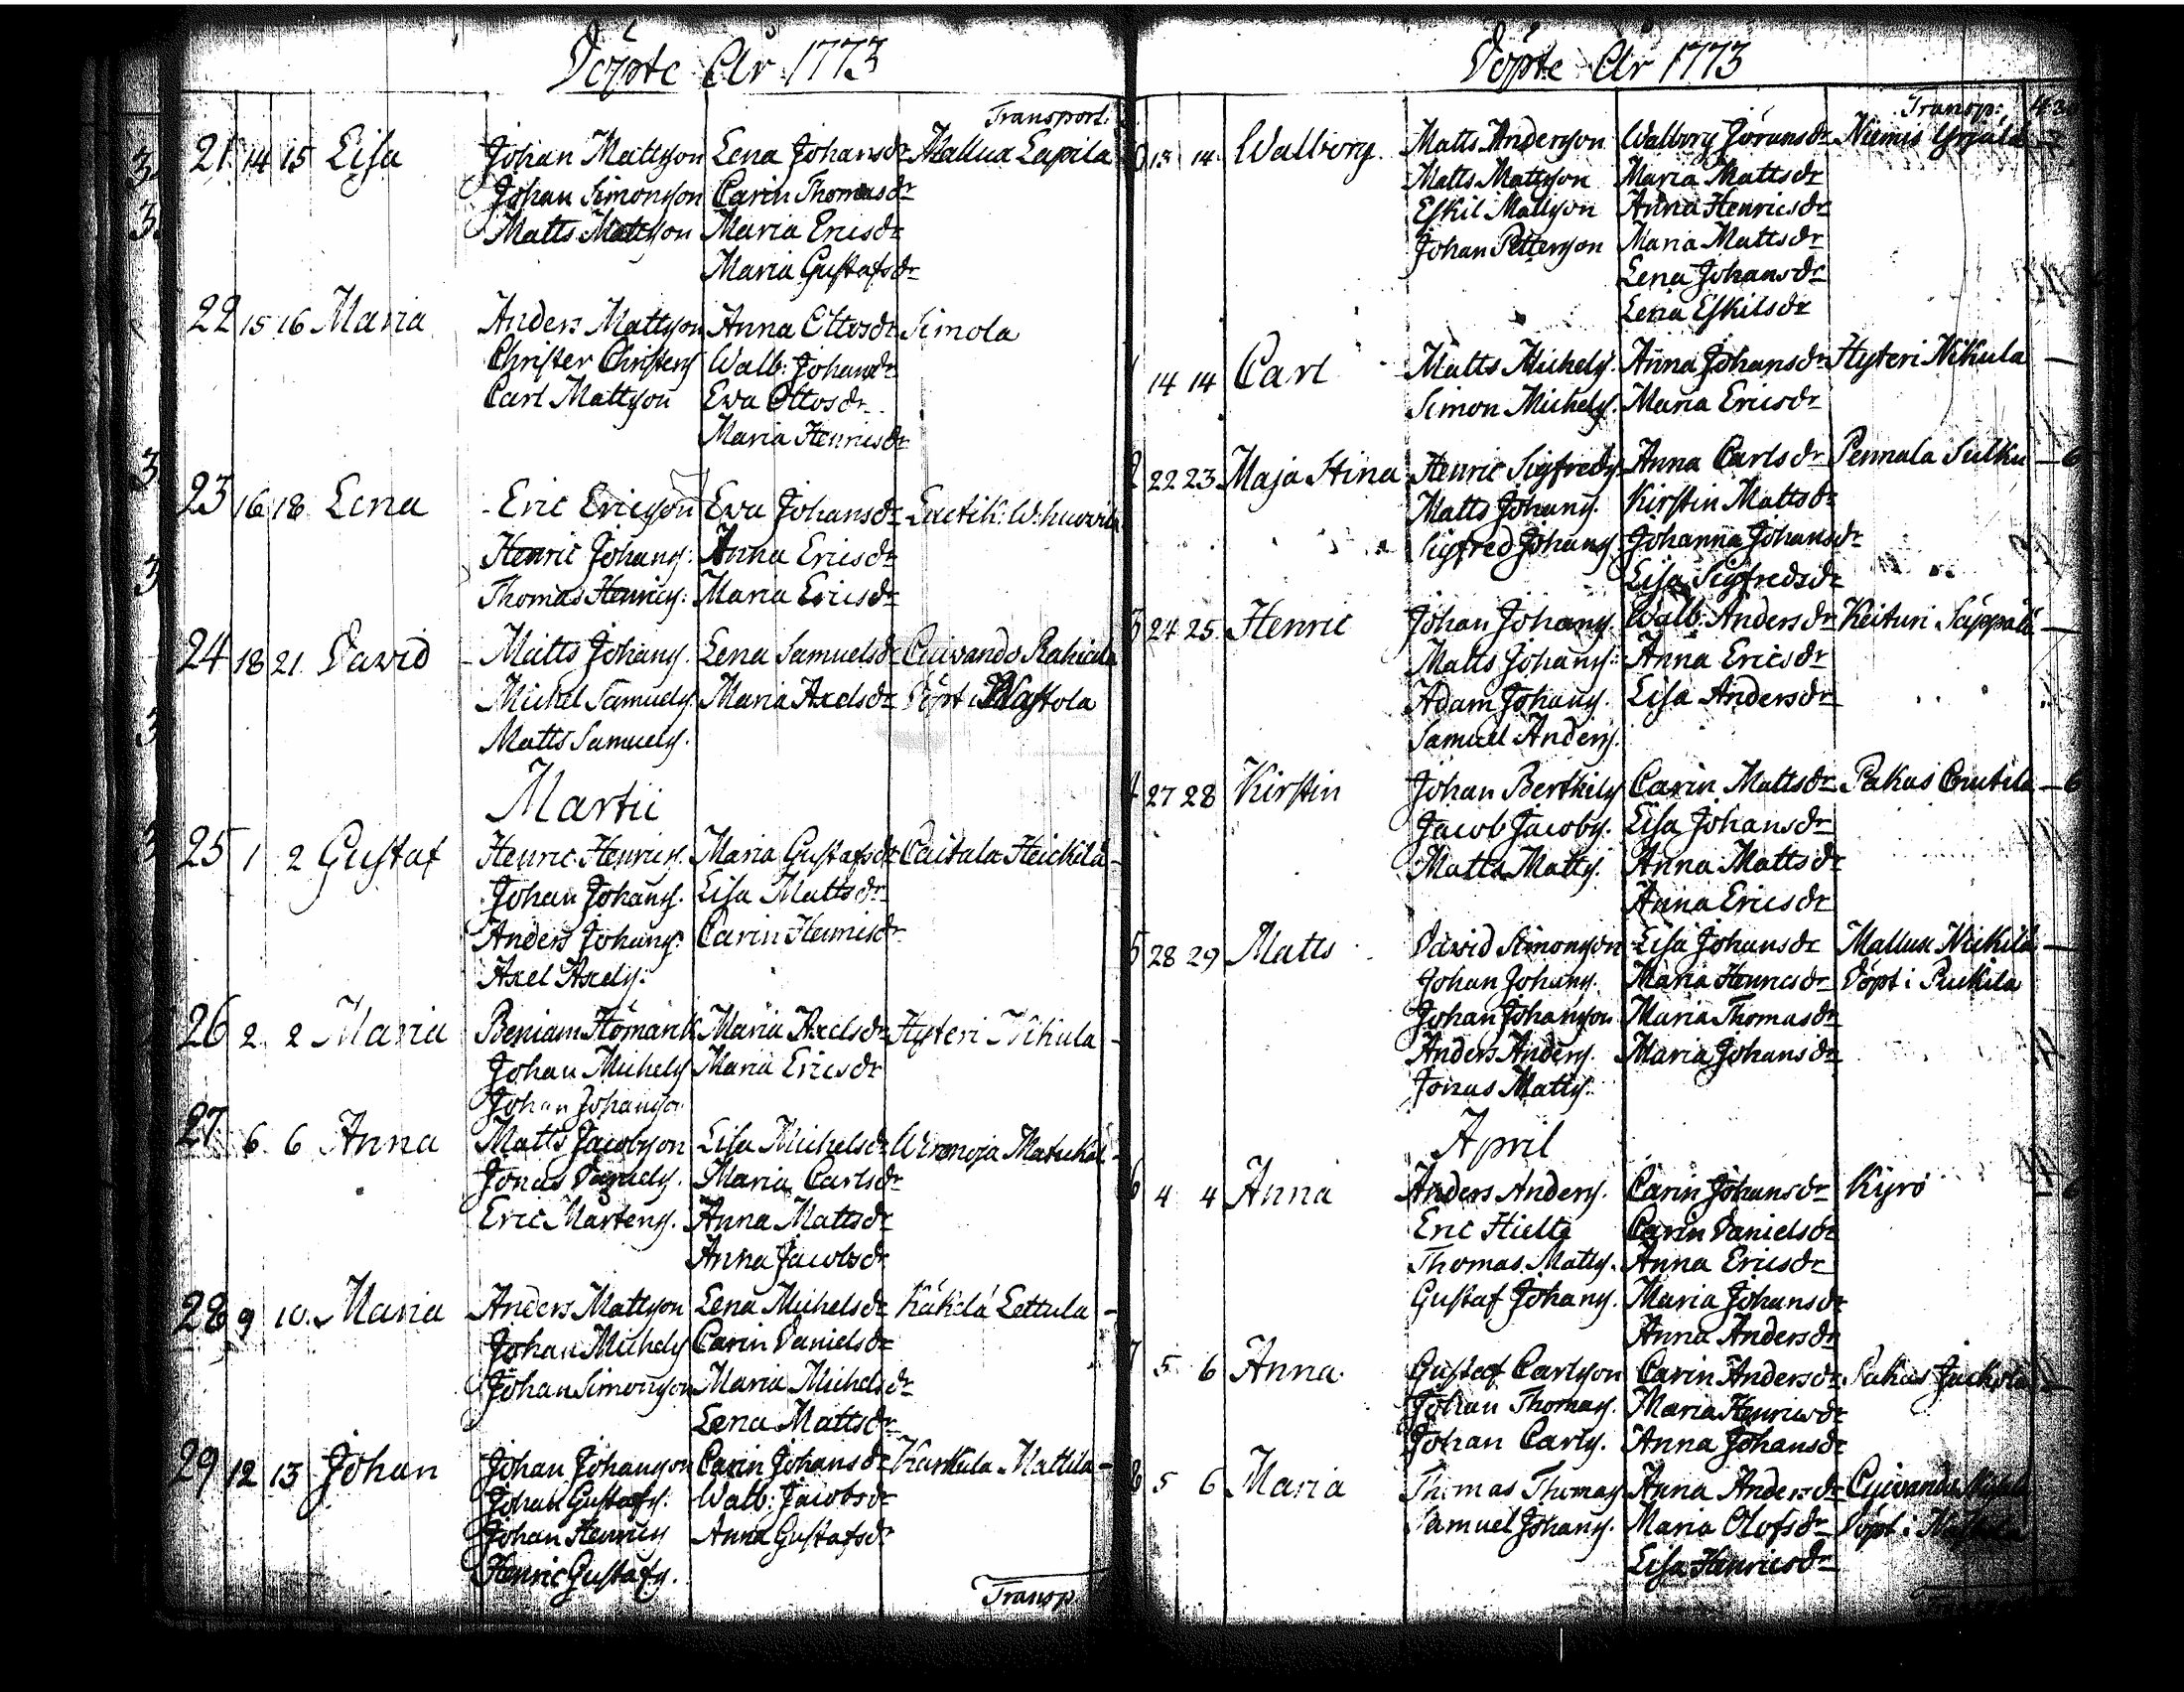 Döpte År 1773
Transport.
21 14 15 Lisa Johan Mattsson Lena Johansdr Mallua Lapila
Johan Simonsson Carin Thomasdr
Matts Mattsson Maria Ericsdr
Maria Gustafsdr
22 15 16 Maria Anders Mattsson Anna Ottosdr Simola
Christer Christers Walb: Johansdr
Carl Mattsson Ewa Ottosdr
Maria Henricsdr
23 16 18 Lena Eric Ericsson Ewa Johansdr
Henric Johans: Anna Ericsdr
Thomas Henrics: Maria Ericsdr
24 18 21 David Matts Johans. Lena Samuelsdr
Michel Samuels. Maria Axelsdr Döpt i
Matts Samuels.
Martii
25 1 2 Gustaf Henric Henrics. Maria Gustafsdr Caitala Heickilä
Johan Johans. Lisa Mattsdr
Anders Johans: Carin Henricsdr
Axel Axels.
26 2 2 Maria Beniam Homanik Maria Axelsdr Hysteri Nikula
Johan Michels Maria Ericsdr
Johan Johansson
27 6 6 Anna Matts Jacobsson Lisa Michelsdr
Jonas Daniels. Maria Carlsdr
Eric Mårtens. Anna Mattsdr
Anna Jacobsdr
28 9 10. Maria Anders Mattsson Lena Michelsdr Kåkelä Lettula
Johan Michels Carin Danielsdr
Johan Simonsson Maria Michelsdr
Lena Mattsdr
29 12 13 Johan Johan Johansson Carin Johansdr Karkula Mattila
Johan Gustafs: Walb: Jacobsdr
Johan Henrics Anna Gustafsdr
Henric Gustafs.
Transp
Döpte År 1773
Transp:
13 14 Walborg. Matts Andersson Walborg Göransdr Niemis
Matts Mattsson Maria Mattsdr
Eskil Mattsson Anna Henricsdr
Johan Pettersson Maria Mattsdr
Lena Johansdr
Lena Eskilsdr
14 14 Carl Matts Michels. Anna Johansdr Hysteri Nikula —
Simon Michels. Maria Ericsdr
2 22 23 Maja Stina Henric Sigfreds Anna Carlsdr Pennala Sulku — 6
Matts Johans. Kirstin Mattsdr
Sigfred Johans Johanna Johansdr
Lisa Sigfredsdr
24 25 Henric Johan Johans. Walb: Andersdr Keituri Säppälä —
Matts Johans: Anna Ericsdr
Adam Johans. Lisa Andersdr
Samuel Anders.
4 27 28 Kirstin Johan Berthils Carin Mattsdr Pakas — 6
Jacob Jacobs. Lisa Johansdr
Matts Matts. Anna Mattsdr
Anna Ericsdr
5 28 29 Matts David Simonsson Lisa Johansdr Mallua —
Johan Johans. Maria Henricsdr Döpt i Puckila
Johan Johansson Maria Thomasdr
Anders Anders. Maria Johansdr
Jonas Matts.
April
6 4 4 Anna Anders Anders. Carin Johansdr Kyrö
Eric Hielte Carin Danielsdr
Thomas Matts. Anna Ericsdr
Gustaf Johans. Maria Johansdr
Anna Andersdr
7 5 6 Anna. Gustaf Carlsson Carin Andersdr Pakas
Johan Thomas. Maria Henricsdr
Johan Carls. Anna Johansdr
8 5 6 Maria Thomas Thomas Anna Andersdr
Samuel Johans. Maria Olofsdr Döpt i
Lisa Henricsdr